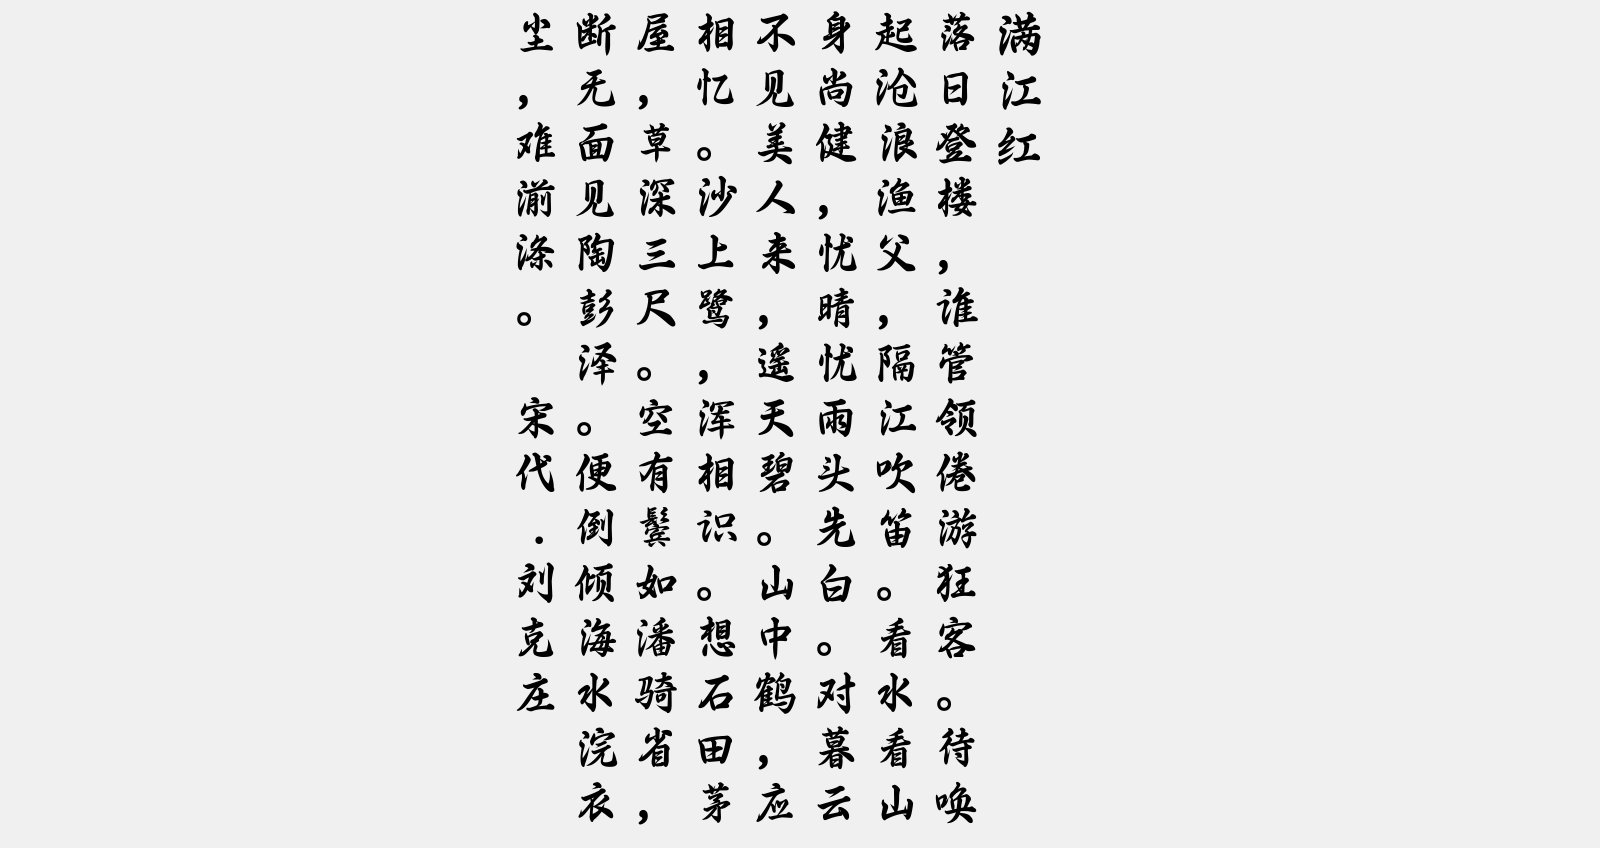 满江红
落日登楼，谁管领倦游狂客。待唤
起沧浪渔父，隔江吹笛。看水看山
身尚健，忧晴忧雨头先白。对暮云
不见美人来，遥天碧。山中鹤，应
相忆。沙上鹭，浑相识。想石田茅
屋，草深三尺。空有鬓如潘骑省，
断无面见陶彭泽。便倒倾海水浣衣
尘，难湔涤。 宋代.刘克庄